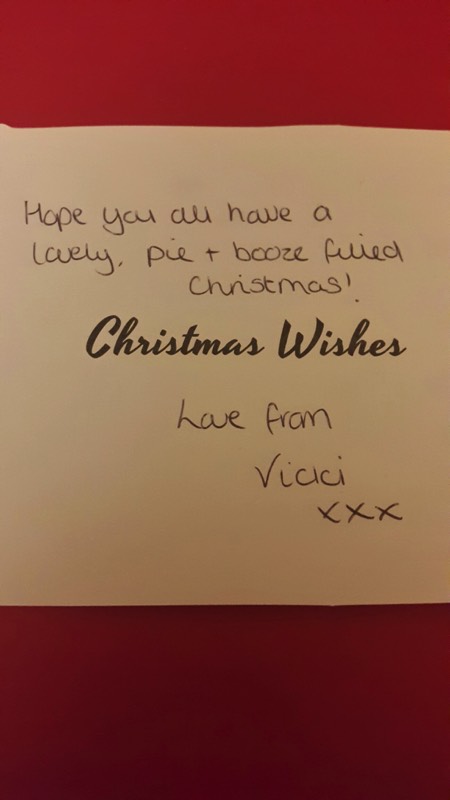 Hope you all have a
lovely, pie + booze filled
Christmas!
Christmas Wishes
Love from
Vicki
xxx